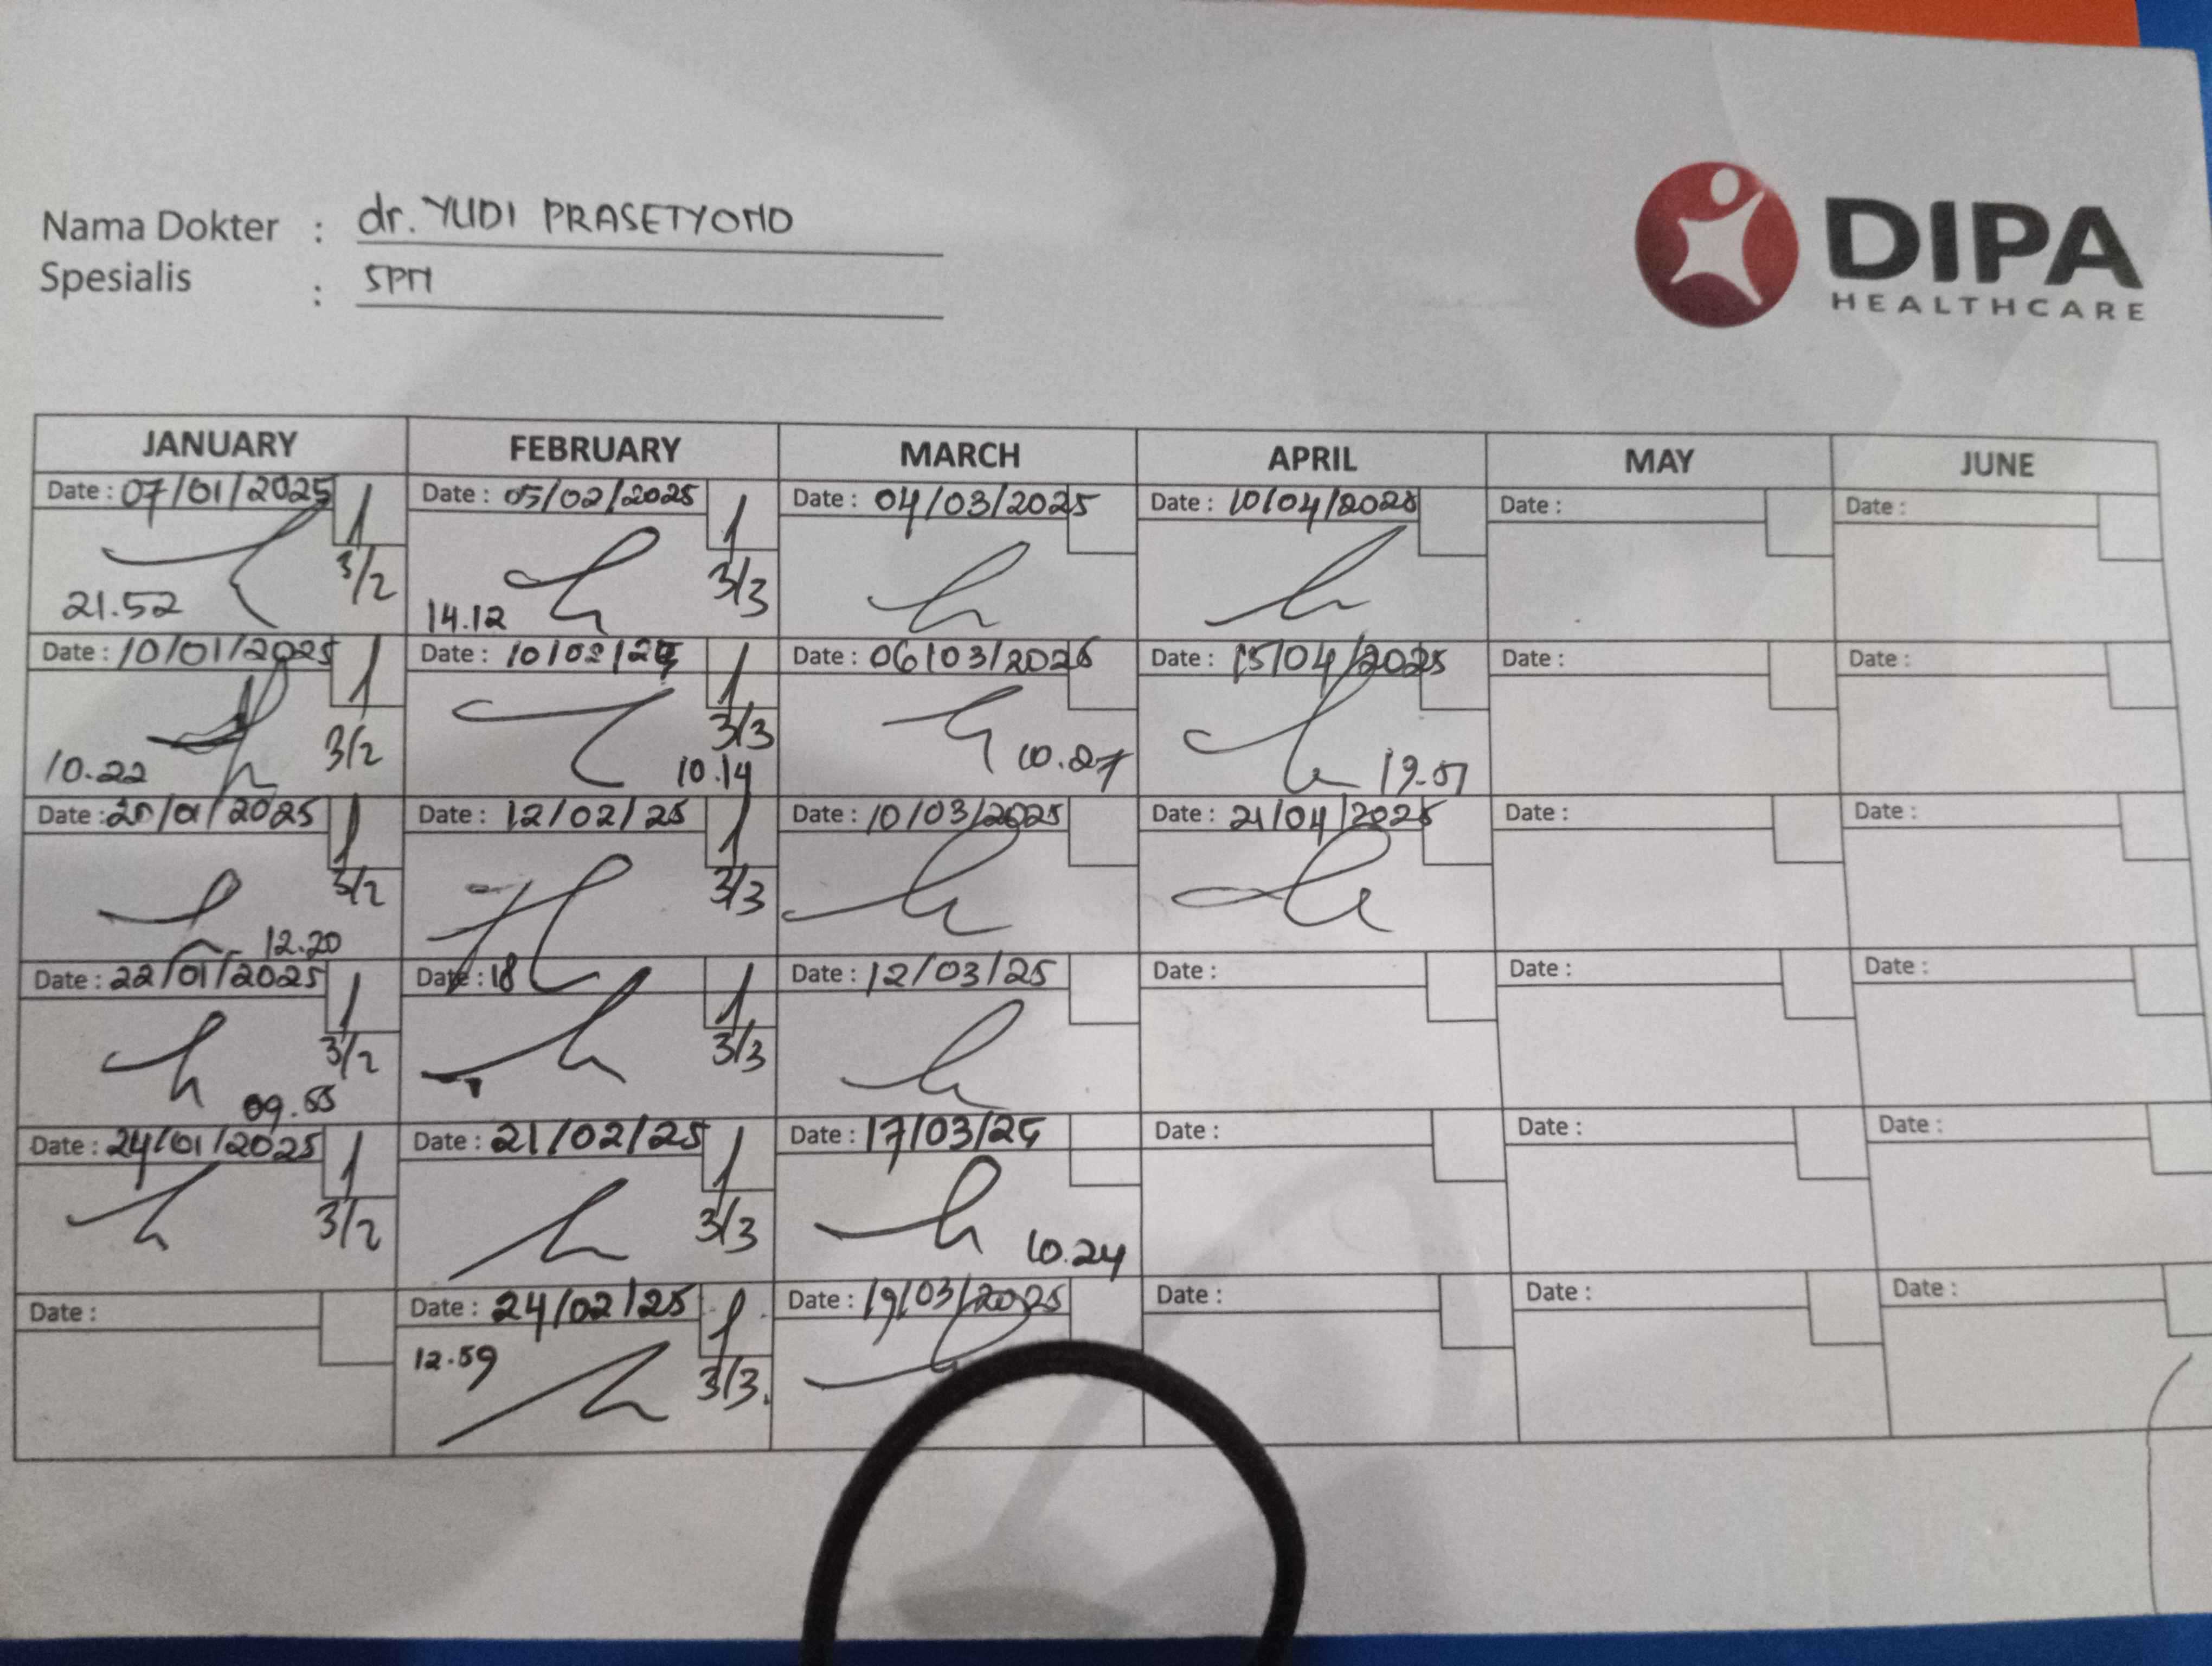 Nama Dokter : dr. YUDI PRASETYONO
Spesialis : SPM
DIPA
HEALTHCARE
JANUARY FEBRUARY MARCH APRIL MAY JUNE
Date : 07/01/2025 Date : 05/02/2025 Date : 04/03/2025 Date : 10/04/2025 Date : Date :
3/2 3/3
21.52 14.12
Date : 10/01/2025 Date : 10/02/25 Date : 06/03/2025 Date : 15/04/2025 Date : Date :
3/2 3/3
10.22 10.14 10.27 19.01
Date : 20/01/2025 Date : 12/02/25 Date : 10/03/2025 Date : 21/04/2025 Date : Date :
3/2 3/3
12.20
Date : 22/01/2025 Date : 18 Date : 12/03/25 Date : Date : Date :
3/2 3/3
09.55
Date : 24/01/2025 Date : 21/02/25 Date : 17/03/25 Date : Date : Date :
3/2 3/3
10.24
Date : Date : 24/02/25 Date : 19/03/2025 Date : Date : Date :
12.59 3/3.